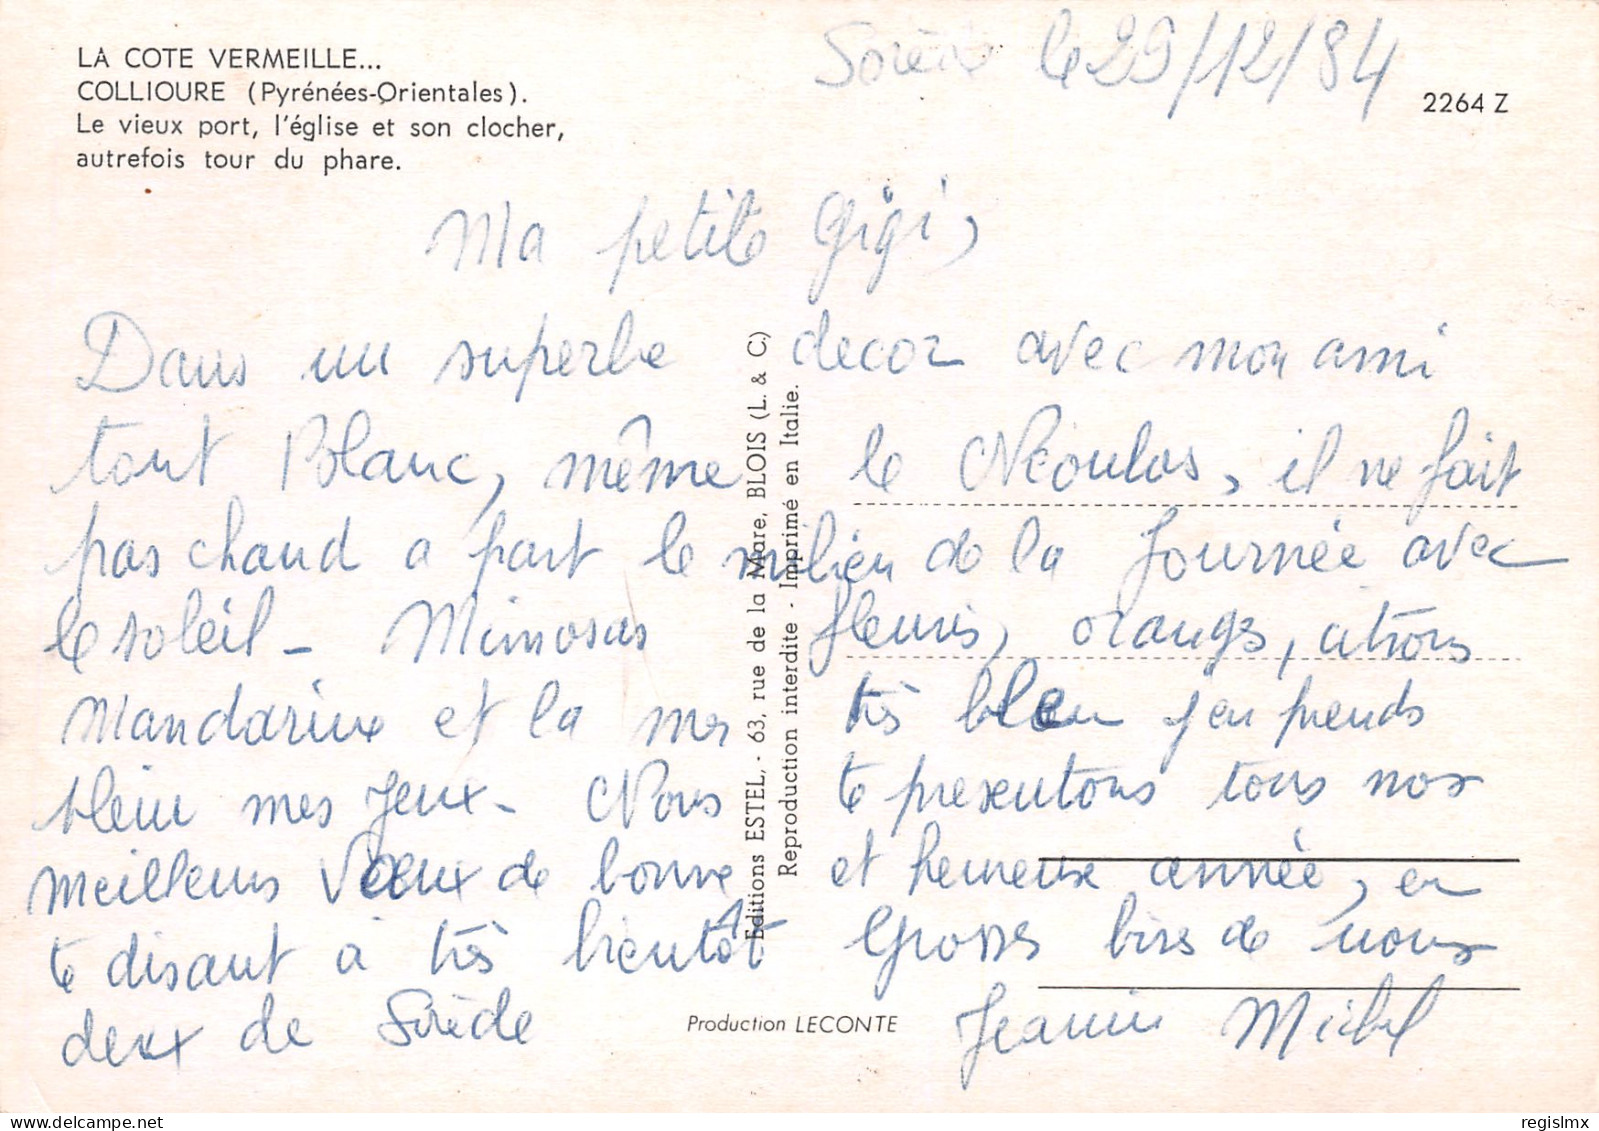 LA COTE VERMEILLE...
COLLIOURE (Pyrénées-Orientales).
Le vieux port, l'église et son clocher,
autrefois tour du phare.
le 29/12/84
2264 Z
Ma petite Gigi,
Dans un superbe decor avec mon ami
tout Blanc, même le Néoulos, il ne fait
pas chaud a part le milieu de la Journée avec
le soleil - Mimosas fleuris, oranges, citrons
Mandarine et la mer très bleu j'en prends
plein mes yeux - Nous te presentons tous nos
meilleurs Voeux de bonne et heureuse année, en
te disant à très bientôt Grosses bises de nous
deux de Jeannine Michel
Editions ESTEL, - 63, rue de la Mare, BLOIS (L. & C.)
Reproduction interdite - Imprimé en Italie.
Production LECONTE
regislmx